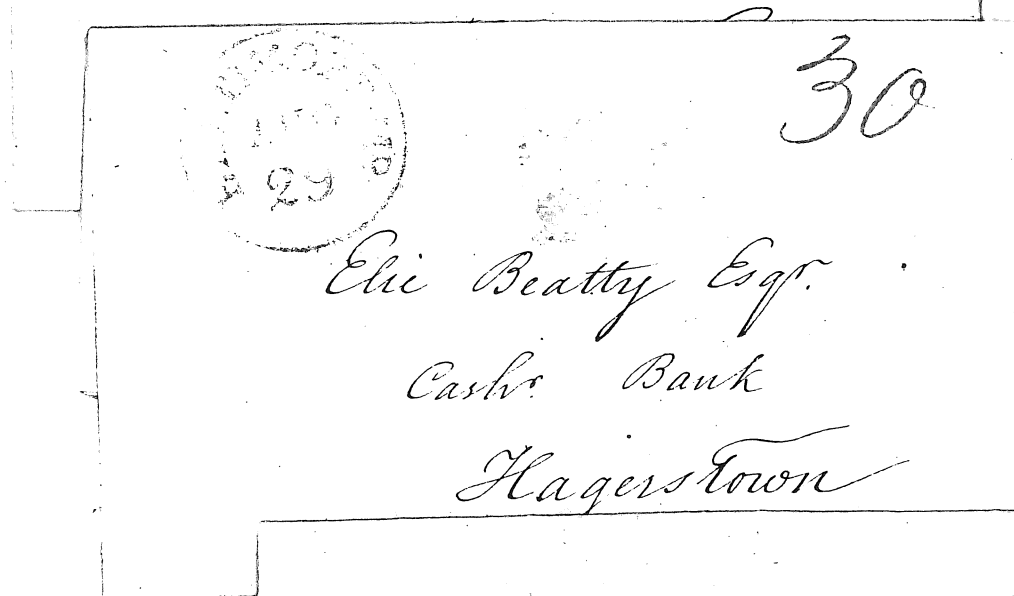 30
29
Elie Beatty Esqr.
Cashr. Bank
Hagerstown